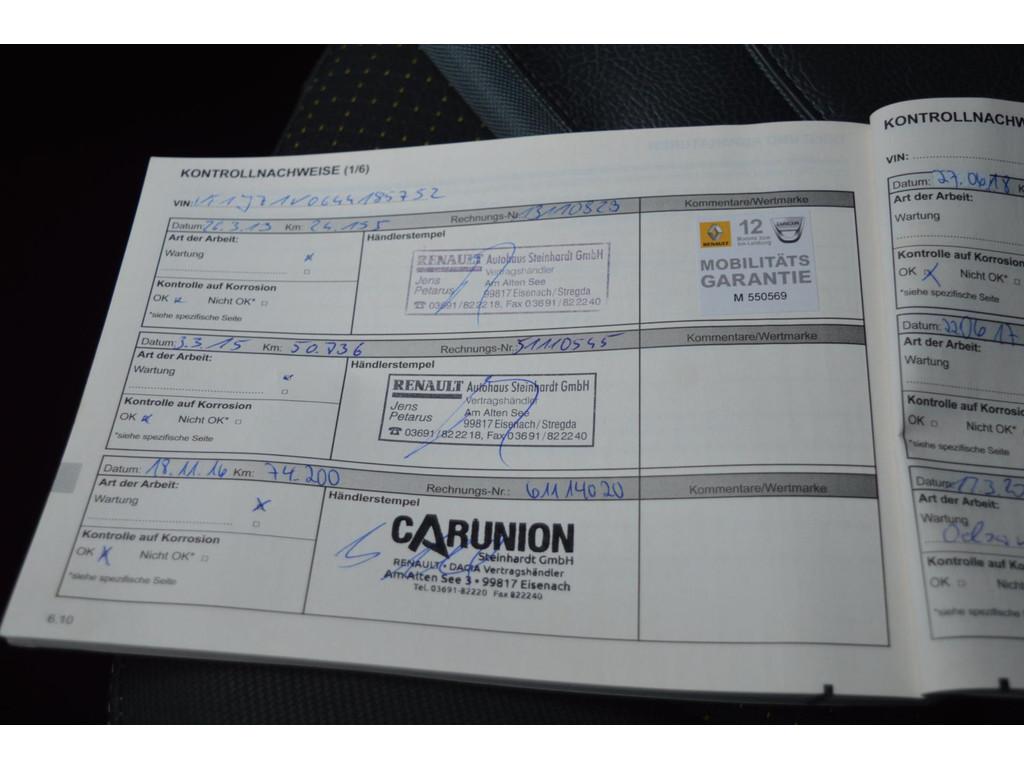 KONTROLLNACHWEISE (1/6)
VIN:
Datum: 26.3.13 Km: 24.155 Rechnungs-Nr. 13110823 Kommentare/Wertmarke
Art der Arbeit: Händlerstempel
Wartung
Kontrolle auf Korrosion
OK Nicht OK*
*siehe spezifische Seite
RENAULT Autohaus Steinhardt GmbH
Vertragshändler
Jens Am Alten See
Petarus 99817 Eisenach/Stregda
☎ 03691/822218, Fax 03691/822240
RENAULT 12
MOBILITÄTS
GARANTIE
M 550569
Datum: 3.3.15 Km: 50.736 Rechnungs-Nr. 51110545 Kommentare/Wertmarke
Art der Arbeit: Händlerstempel
Wartung
Kontrolle auf Korrosion
OK Nicht OK*
*siehe spezifische Seite
RENAULT Autohaus Steinhardt GmbH
Vertragshändler
Jens Am Alten See
Petarus 99817 Eisenach/Stregda
☎ 03691/822218, Fax 03691/822240
Datum: 18.11.16 Km: 74.200 Rechnungs-Nr.: 61114020 Kommentare/Wertmarke
Art der Arbeit: Händlerstempel
Wartung
Kontrolle auf Korrosion
OK Nicht OK*
*siehe spezifische Seite
CARUNION
Steinhardt GmbH
RENAULT • DACIA Vertragshändler
Am Alten See 3 • 99817 Eisenach
Tel. 03691-82220 Fax 822240
6.10
KONTROLLNACHW
VIN:
Datum: 27.06.18 K
Art der Arbeit:
Wartung
Kontrolle auf Korrosio
OK Nicht OK*
*siehe spezifische Seite
Datum: 22.06.17
Art der Arbeit:
Wartung
Kontrolle auf Korrosio
OK Nicht OK*
*siehe spezifische Seite
Datum: 17.3.20
Art der Arbeit:
Wartung
Kontrolle auf Korros
OK Nicht
*siehe spezifische Seite